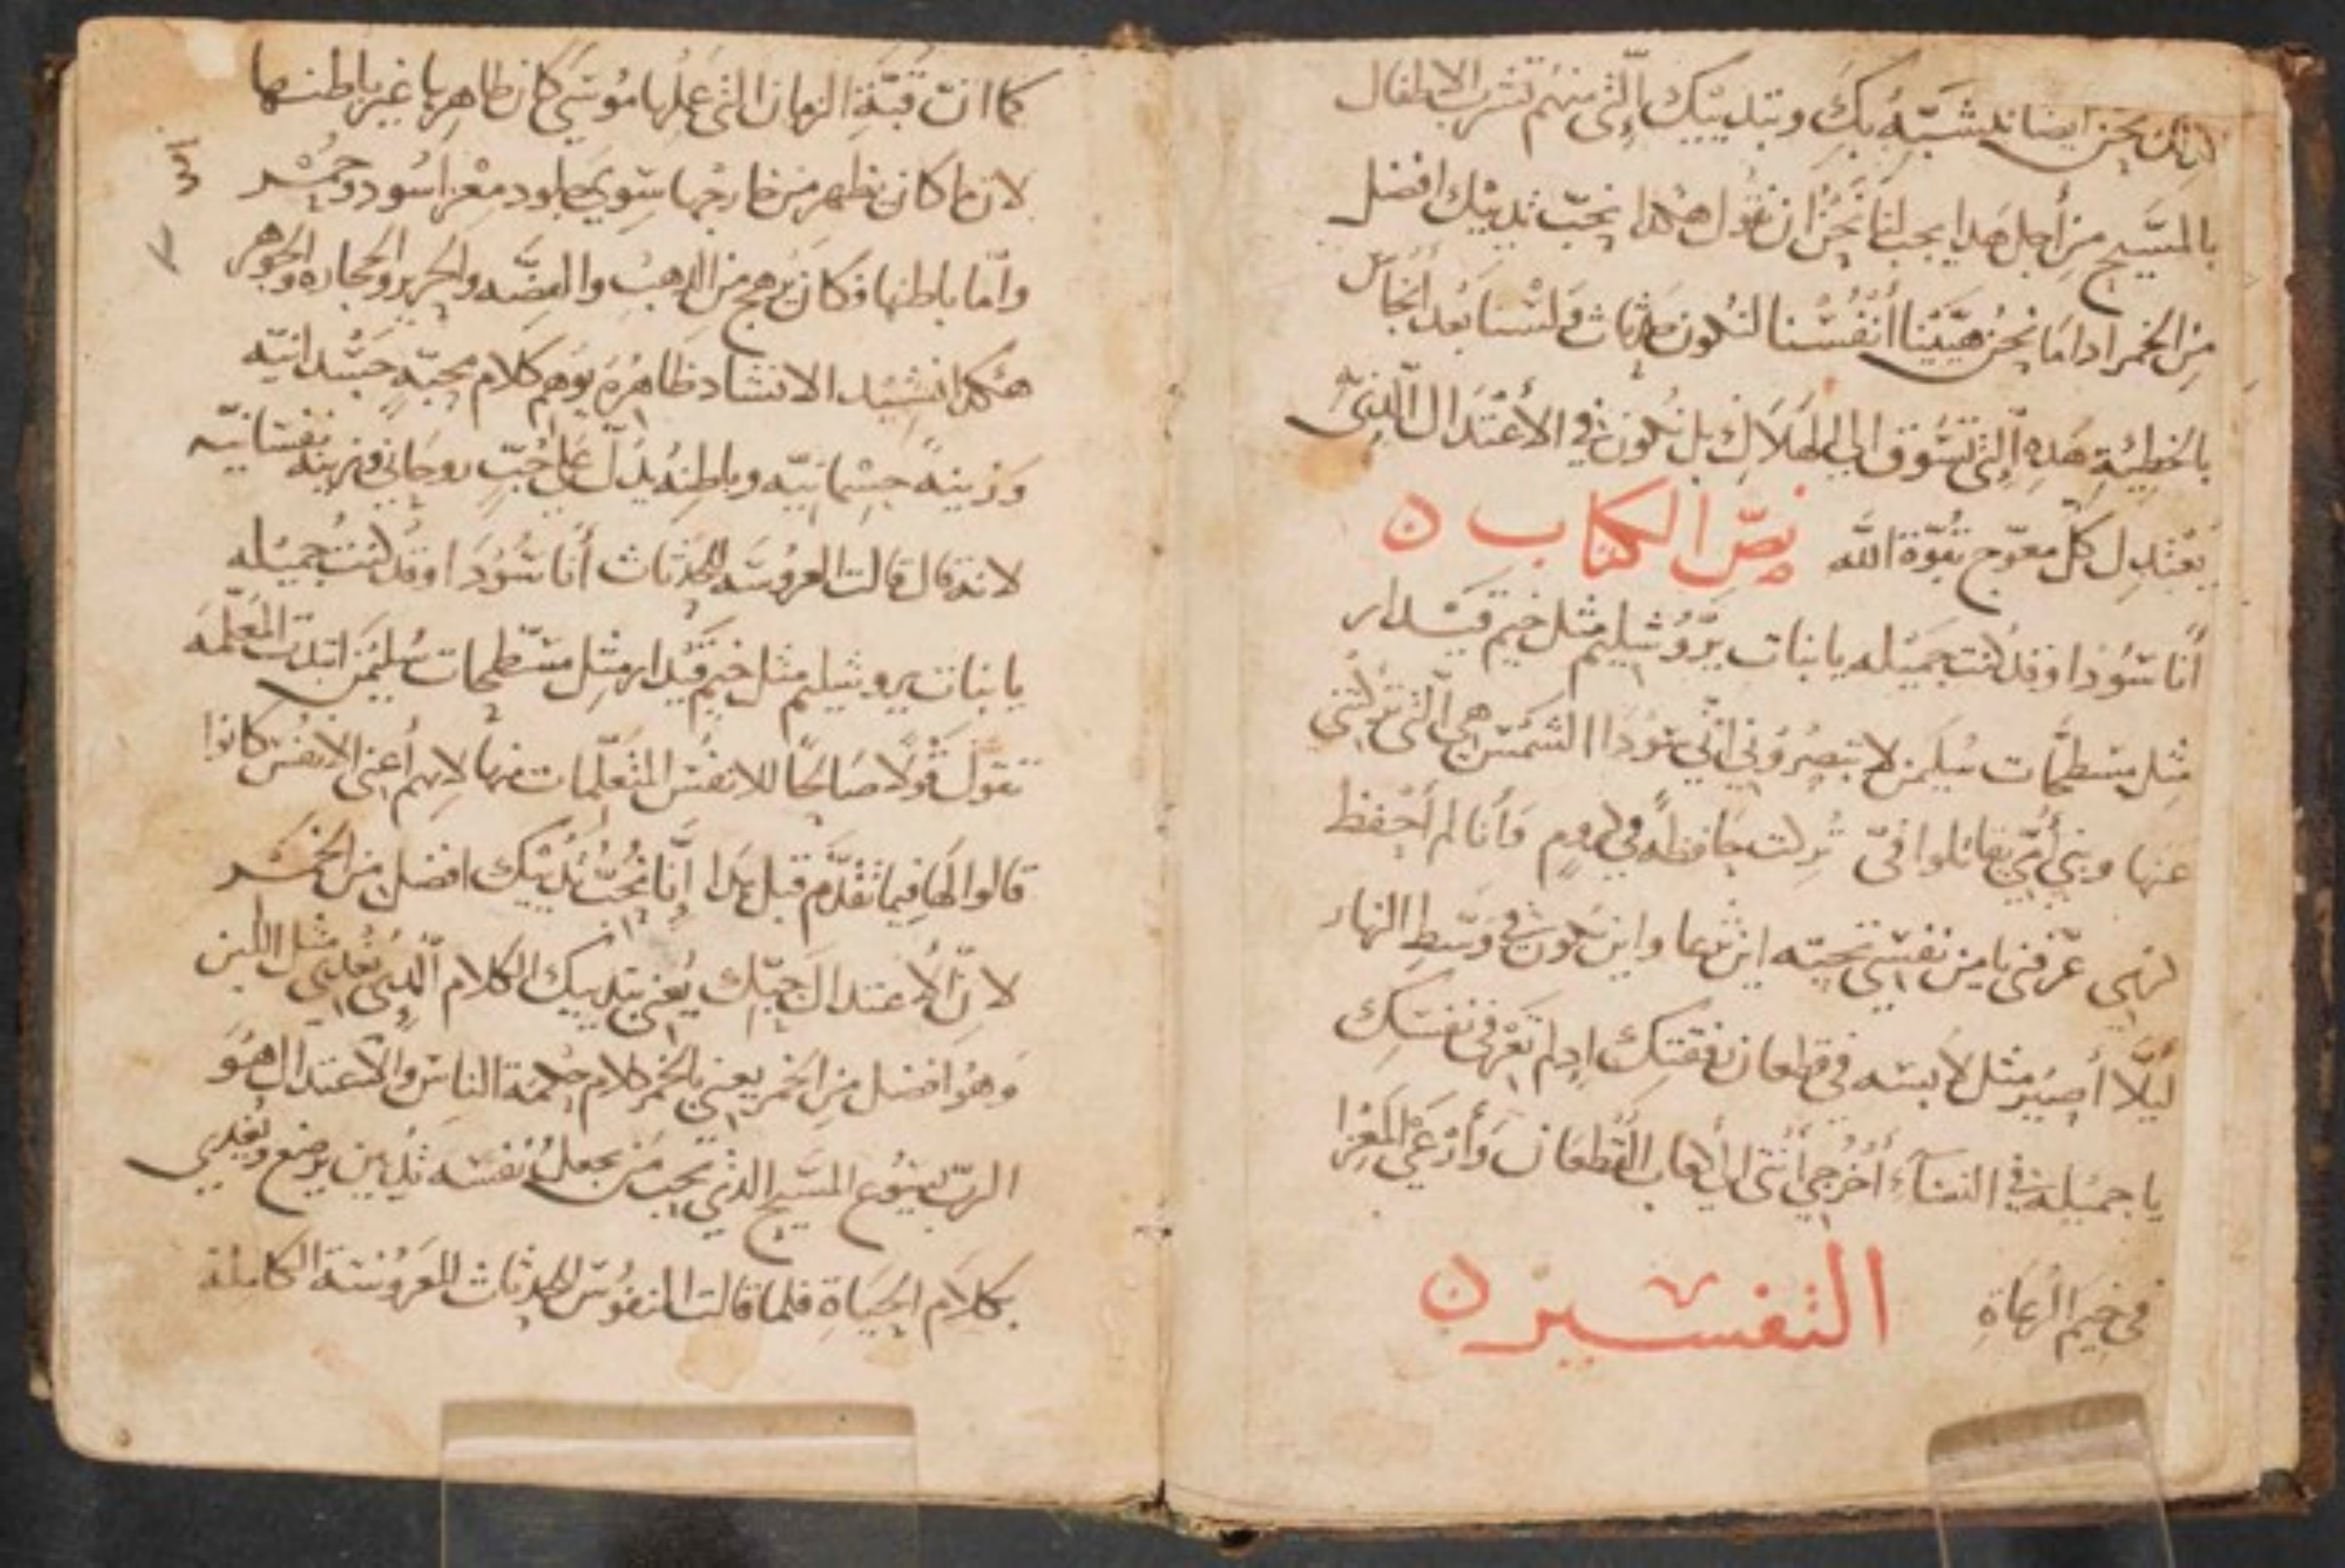 لذلك نحن ايضا نشبه بك وبتدييك التى منهم تشرب الاطفال
بالمسيح من أجل هدا يجب لنا نحن ان نقول هكدا نحبّ ثدييك افضل
من الخمر ادا ما نحن هيّئنا أنفسنا لنكون حدثات ولسنا بعد
بالخطيئة هده التى تسوق الى الهلاك بل نكون فى الأعتدال الذى
يعتدل كلّ معوّج بقوّة اللّه نصّ الكتاب ن
أنا سَوْدا وقد كنت جميله يا بنات يروشليم مثل خيم قيدار
مثل سطحات سليمن لا تبصرونى انّى سودا الشمس هى الّتى
عنها وبنى أمّى يقاتلوا فىّ تركت حافظةً فى كروم وأنا لم أحفظ
كرمى عرّفنى يا من نفسى تحبّه اين ترعا واين تكون فى وسط النهار
ليلّا أصير مثل لابسه فى قطعان رفقتك ادا لم تعرفى نفسك
يا جميله فى النسآء أخرجى أنتى الى اعقاب القطعان وأرعى المعزا
فى خيم الرعاة التفسير ن
كما انّ قبّة الزمان الّتى عملها موسى كان ظاهرها غير باطنها
لان ما كان يظهر من خارجها سوى جلود معز اسود وحمر
وامّا باطنها فكان يرهج من الدهب والفضّه والحرير والحجاره والجوهر
هكدا نشيد الانشاد ظاهره يوهم كلام محبّةٍ جسدانيّه
وزينةً جسمانيّه وباطنه يدلّ على حُبّ روحانى وزينه نفسانيّه
لانه قال قالت العروسه للحدثات أنا سَوْدا وقد كنت جميله
يا بنات يروشليم مثل خيم قيدار مثل سطحات سليمن ابتدت المعلّمه
تقول قولًا صالحًا للانفس المتعلّمات منها لانهم أعنى الانفس كانوا
قالوا لها فيما تقدّم قبل هدا إنّا نُحبّ ثدييك افضل من الخمر
لانّ الاعتدال حبّك يُعنى بثدييك الكلام الّدى يُغدى مثل اللبن
وهو افضل من الخمر يعنى بالخمر كلام حكمة الناس والاعتدال هو
الربّ يسوع المسيح الذى يحب من يجعل نفسه ثديين يرضع ويُغدى
بكلام الحياة فلما قالت النفوس الحدثات للعروسة الكاملة